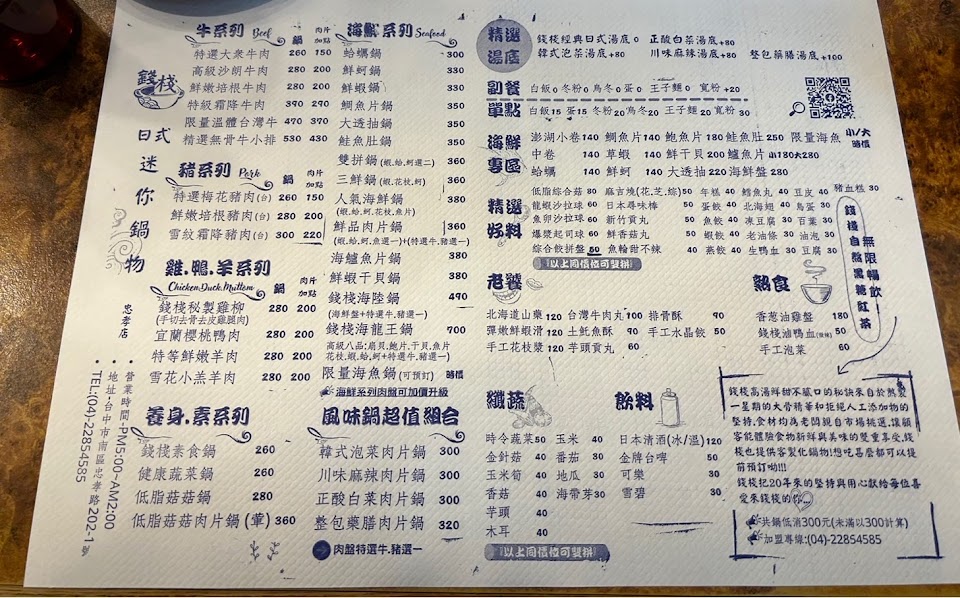 錢棧
日式迷你鍋物
忠孝店
•營業時間-PM5:00~AM2:00
•地址-台中市南區忠孝路202-1號
•TEL:(04)-22854585
牛系列 Beef 鍋 肉片加點
特選大衆牛肉 260 150
高級沙朗牛肉 280 200
鮮嫩培根牛肉 280 200
特級霜降牛肉 390 290
限量溫體台灣牛 470 370
精選無骨牛小排 530 430
豬系列 Pork 鍋 肉片加點
特選梅花豬肉(台) 260 150
鮮嫩培根豬肉(台) 280 200
雪紋霜降豬肉(台) 300 220
雞.鴨.羊系列
Chicken.Duck.Muttom 鍋 肉片加點
錢棧秘製雞柳 280 200
(手切去骨去皮雞腿肉)
宜蘭櫻桃鴨肉 280 200
特等鮮嫩羊肉 280 200
雪花小羔羊肉 280 200
養身.素系列
錢棧素食鍋 260
健康蔬菜鍋 260
低脂菇菇鍋 280
低脂菇菇肉片鍋(葷) 360
海鮮系列 Seafood
蛤蠣鍋 300
鮮蚵鍋 330
鮮蝦鍋 330
鯛魚片鍋 350
大透抽鍋 350
鮭魚肚鍋 350
雙拼鍋(蝦,蛤,蚵選二) 360
三鮮鍋(蝦,花枝,蚵) 360
人氣海鮮鍋 380
(蝦,蛤,蚵,花枝,魚片)
鮮品肉片鍋 360
(蝦,蛤,蚵,魚選一)+(特選牛,豬選一)
海鱸魚片鍋 380
鮮蝦干貝鍋 380
錢棧海陸鍋 490
(海鮮盤+特選牛,豬選一)
錢棧海龍王鍋 700
高級八品:扇貝,鮑片,干貝,魚片
花枝,蝦,蛤,蚵+特選牛,豬選一)
限量海魚鍋(可預訂) 時價
海鮮系列肉盤可加價升級
風味鍋超值組合
韓式泡菜肉片鍋 300
川味麻辣肉片鍋 300
正酸白菜肉片鍋 300
整包藥膳肉片鍋 320
肉盤特選牛.豬選一
精選湯底
錢棧經典日式湯底0 正酸白菜湯底+80
韓式泡菜湯底+80 川味麻辣湯底+80 整包藥膳湯底+100
副餐 白飯0 冬粉0 烏冬0 蛋0 王子麵0 寬粉+20
單點 白飯15 蛋15 冬粉20 烏冬20 王子麵20 寬粉30
海鮮專區
澎湖小卷140 鯛魚片140 鮑魚片180 鮭魚肚250 限量海魚 小/大 時價
中卷 140 草蝦 140 鮮干貝200 鱸魚片 小180大280
蛤蠣 140 鮮蚵 140 大透抽220 海鮮盤 280
精選好料
低脂綜合菇80 麻吉燒(花,芝,綜)50 年糕40 鱈魚丸40 豆皮40 豬血糕30
龍蝦沙拉球60 日本尋味棒 50 蛋餃40 北海翅40 鳥蛋30
魚卵沙拉球60 新竹貢丸 50 魚餃40 凍豆腐30 百葉30
爆漿起司球60 鮮香菇丸 50 蝦餃40 老油條30 油泡30
綜合餃拼盤50 魚輪甜不辣 40 燕餃40 生鴨血30 豆腐30
以上同價位可雙拼
老饕
北海道山藥120 台灣牛肉丸100 排骨酥 90
彈嫩鮮蝦滑120 土魠魚酥 90 手工水晶餃50
手工花枝漿120 芋頭貢丸 60
熱食
香蔥油雞盤 180
錢棧滷鴨血(微辣) 50
手工泡菜 60
錢棧自熬黑糖紅茶
無限暢飲
纖蔬
時令蔬菜50 玉米 40
金針菇 40 番茄 30
玉米筍 40 地瓜 30
香菇 40 海帶芽30
芋頭 40
木耳 40
以上同價位可雙拼
飲料
日本清酒(冰/溫)120
金牌台啤 50
可樂 30
雪碧 30
錢棧高湯鮮甜不膩口的秘訣來自於熬製
一星期的大骨精華和拒絕人工添加物的
堅持,食材均為老闆親自市場挑選,讓顧
客能體驗食物新鮮與美味的雙重享受,錢
棧也提供客製化鍋物!想吃甚麼都可以提
前預訂呦!!!
錢棧把20年來的堅持與用心獻給每位喜
愛來錢棧的你
共鍋低消300元(未滿以300計算)
加盟專線:(04)-22854585